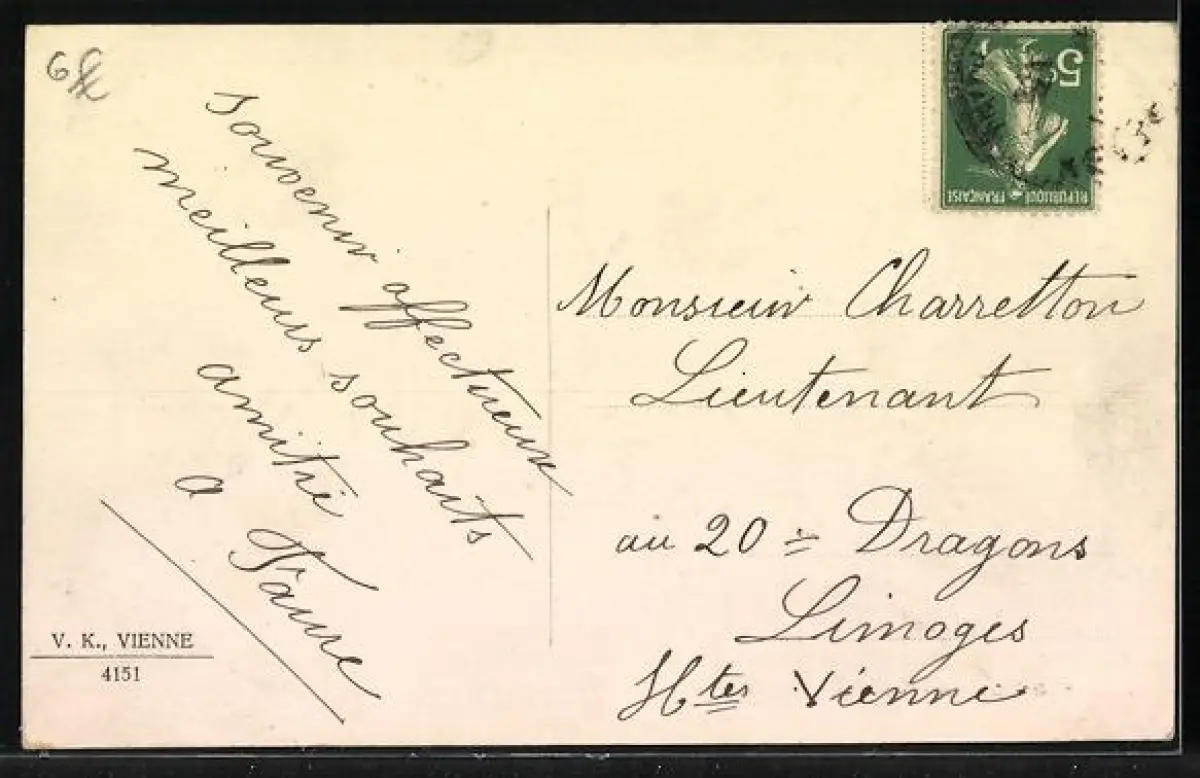 souvenir affectueux
meilleurs souhaits
amitié
a Faure
V. K., VIENNE
4151
5c
REPUBLIQUE FRANÇAISE
Monsieur Charretton
Lieutenant
au 20e Dragons
Limoges
Htes Vienne